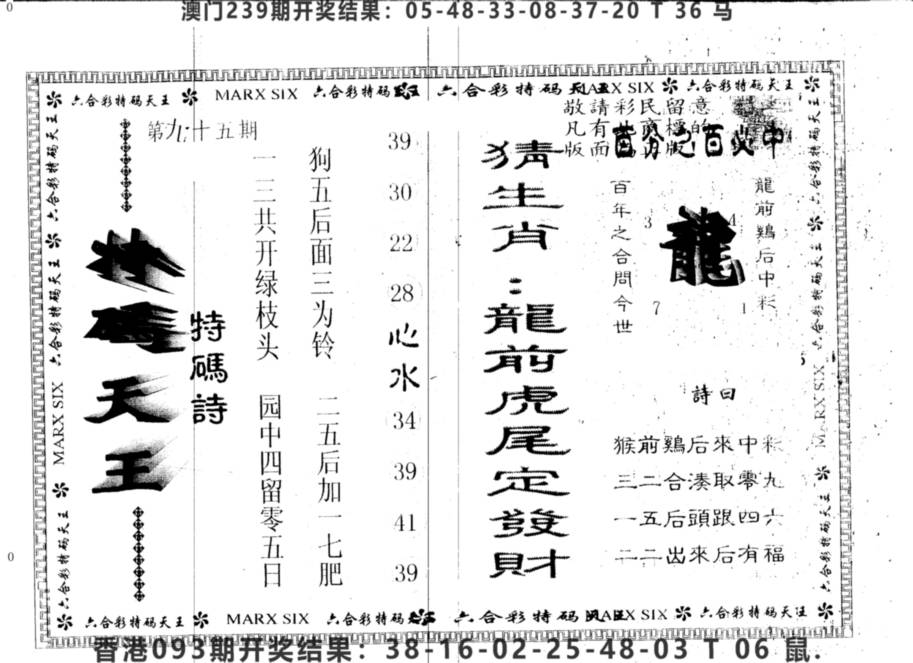 澳门239期开奖结果：05-48-33-08-37-20 T 36 马
六合彩特码天王 MARX SIX 六合彩特码 六合彩特码 MARX SIX 六合彩特码天王
敬請彩民留意
第九十五期
特碼天王
特碼詩
一三共开绿枝头 园中四留零五日
狗五后面三为铃 二五后加一七肥
39
30
22
28
心水
34
39
41
39
猜生肖：龍前虎尾定發財
龍
3 4
7 1
百年之合問今世
龍前鷄后中彩
詩曰
猴前鷄后來中彩
三二合湊取零九
一五后頭跟四六
二二出來后有福
六合彩特码天王
MARX SIX
六合彩特码天王
六合彩特码天王 MARX SIX 六合彩特码 六合彩特码 MARX SIX 六合彩特码天王
香港093期开奖结果：38-16-02-25-48-03 T 06 鼠.